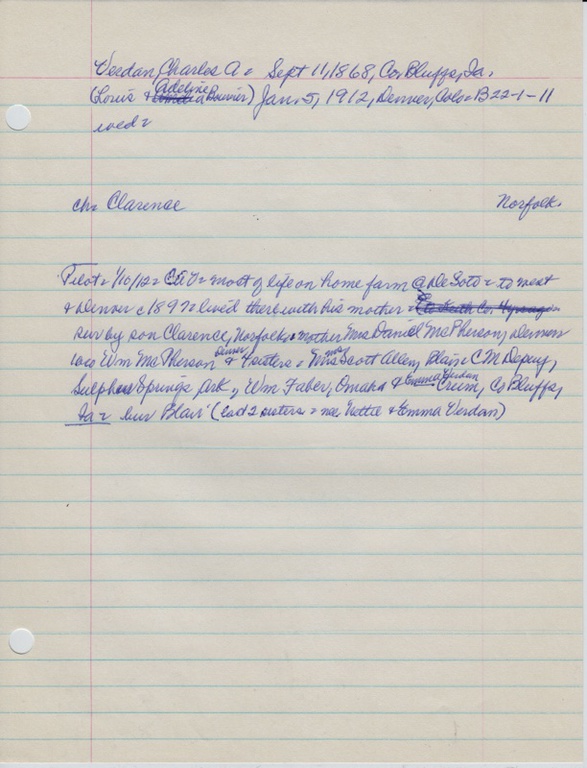 Verdan, Charles A = Sept 11, 1868, Co. Bluffs, Ia.
(Louis & Adeline Bouvier) Jan. 5, 1912, Denver, Colo = B 22-1-11
wed =
ch = Clarence Norfolk.
Pilot = 1/10/12 = C.A.V = most of life on home farm @ De Soto = to west
& Denver c 1897 = lived there with his mother =
sur by son Clarence, Norfolk = mother Mrs Daniel McPherson, Denver
bro Wm McPherson Denver & 4 sisters = Mrs Scott Allen, Blair = C M Depuy,
Sulphur Springs Ark., Wm Faber, Omaha & Emma Verdan Crum, Co Bluffs,
Ia = bur Blair (last 2 sisters = nee Nettie & Emma Verdan)